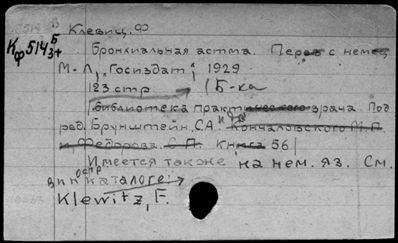 Клевиц, Ф
Кф 5143 Б
3+
Бронхиальная астма. Перев с немец
М-Л, "Госиздат", 1929
123 стр (Б-ка
библиотека практического врача Под
ред. Брунштейн, С.А. и др Кончаловского М.П
и Федорова С.П. Книга 56)
Имеется также на нем. яз. См.
в иностр каталоге:
Klewitz, F.